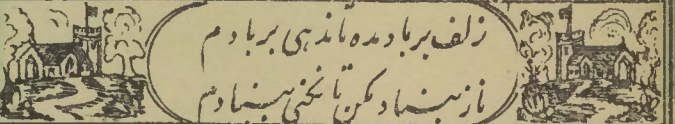 زلف بر باد مده تا ندہی بر بادم
ناز بنیاد مکن تا نکنی بنیادم